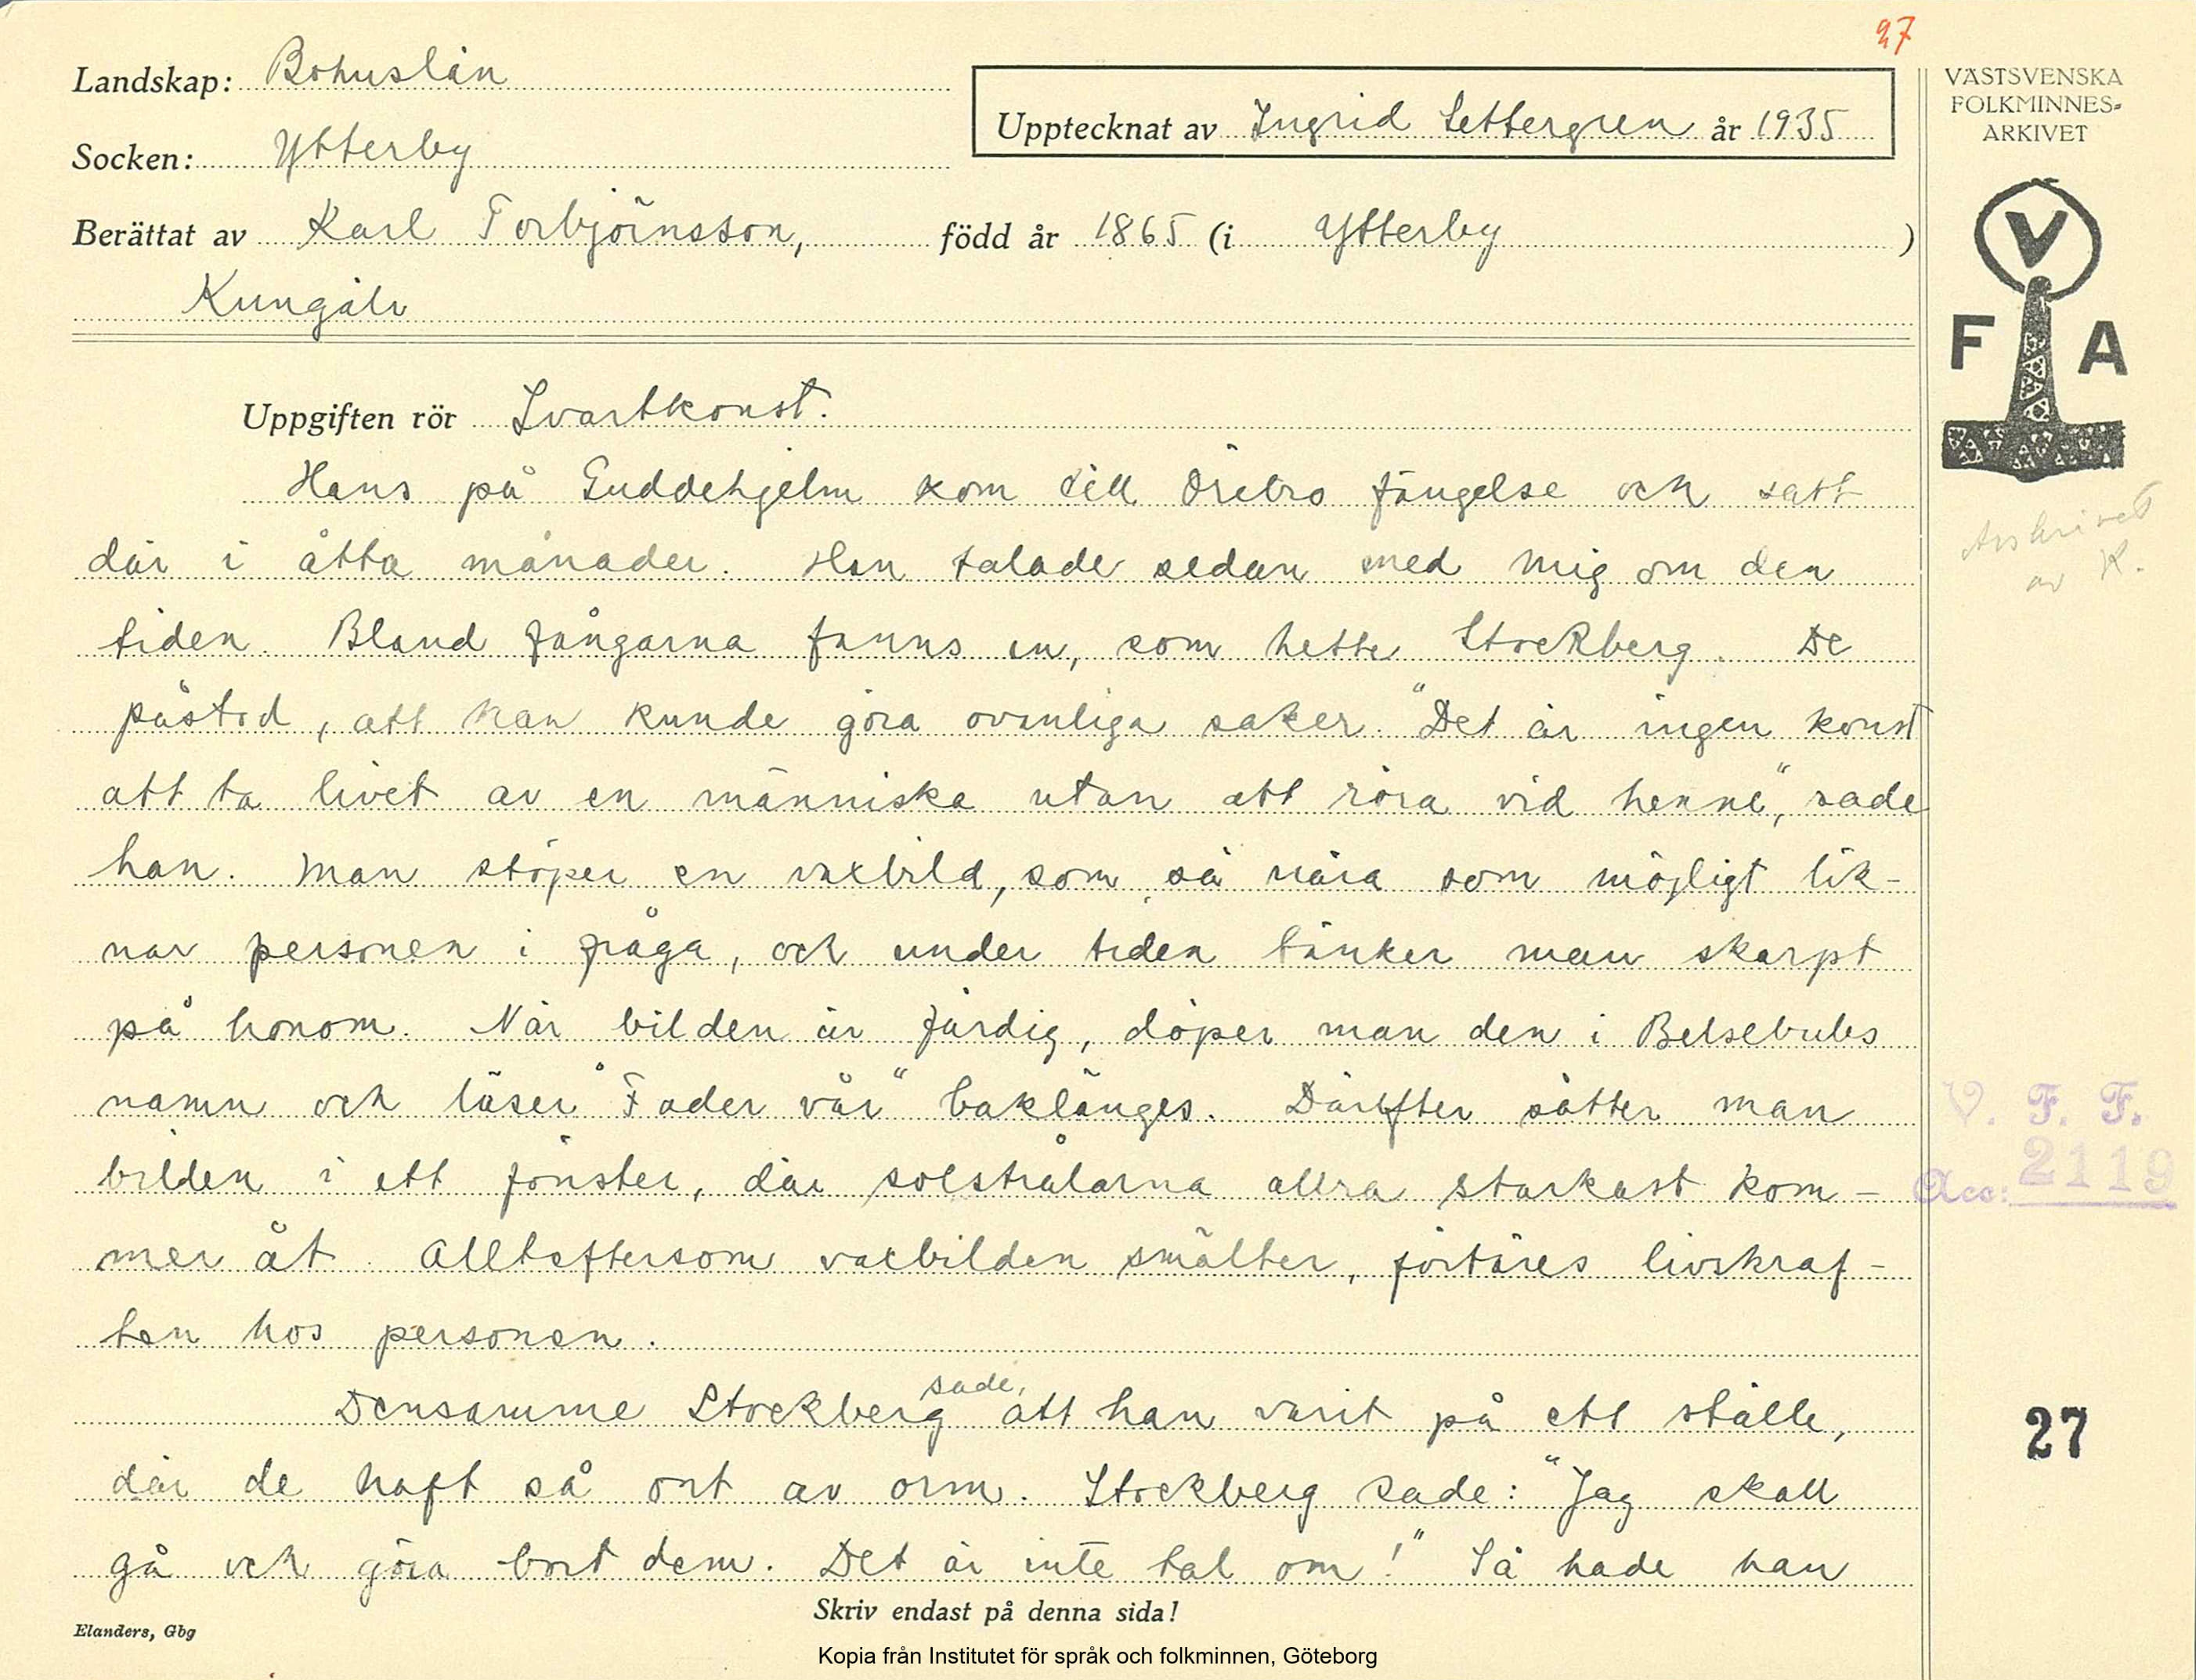 27
Landskap: Bohuslän
Socken: Ytterby
Upptecknat av Ingrid Settergren år 1935
Berättat av Karl Torbjörnsson, född år 1865 (i Ytterby )
Kungälv
VÄSTSVENSKA
FOLKMINNES-
ARKIVET
V
F A
Uppgiften rör Svartkonst.
Hans på Guddehjelm kom till Örebro fängelse och satt
där i åtta månader. Han talade sedan med mig om den
tiden. Bland fångarna fanns en, som hette Stockberg. De
påstod, att han kunde göra ovanliga saker. "Det är ingen konst
att ta livet av en människa utan att röra vid henne", sade
han. Man stöper en vaxbild, som så nära som möjligt lik-
nar personen i fråga, och under tiden tänker man skarpt
på honom. När bilden är färdig, döper man den i Belsebubs
namn och läser "Fader vår" baklänges. Därefter sätter man
bilden i ett fönster, där solstrålarna allra starkast kom-
mer åt. Allteftersom vaxbilden smälter, förtäres livskraf-
ten hos personen.
Densamme Stockberg sade, att han varit på ett ställe,
där de haft så ont av orm. Stockberg sade: "Jag skall
gå och göra bort dem. Det är inte tal om!" Så hade han
Avskrivet
av K.
V. F. F.
Acc: 2119
27
Skriv endast på denna sida!
Elanders, Gbg
Kopia från Institutet för språk och folkminnen, Göteborg